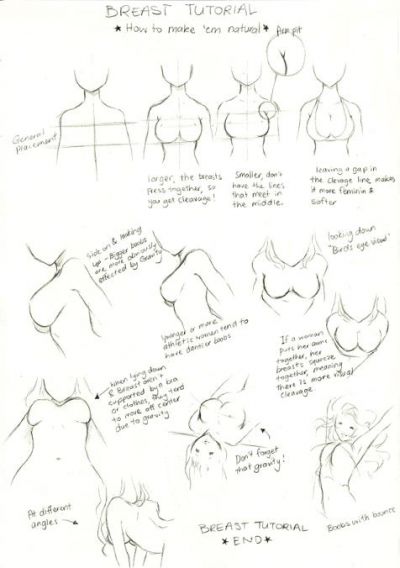 BREAST TUTORIAL
★ How to make 'em natural ★
Armpit
General
placement
larger, the breasts
press together, so
you get cleavage!
Smaller, don't
have the lines
that meet in
the middle.
leaving a gap in
the clevage line, makes
it more feminin &
softer
Side on & looking
up - Bigger boobs
are more obviously
effected by Gravity
Younger or more
athletic women tend to
have dantier boobs
looking down
"Bird's eye view"
If a woman
puts her arms
together, her
breasts squeeze
together, meaning
there is more visual
cleavage.
When lying down
& Breast aren't
supported by a bra
or clothes, they tend
to move off center
due to gravity
Don't forget
that gravity!
At different
angles
Boobs with bounce
BREAST TUTORIAL
★ END ★